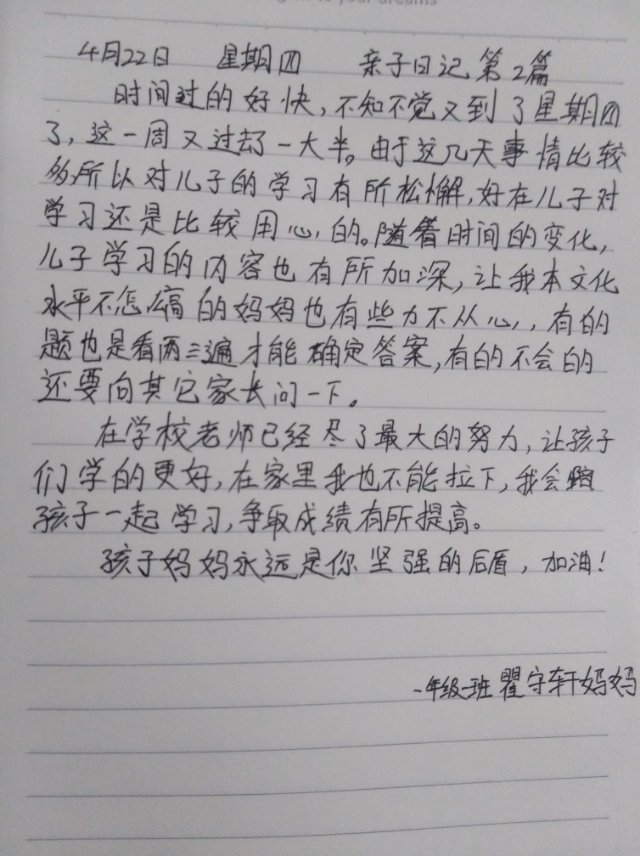 4月22日 星期四 亲子日记第2篇
时间过的好快,不知不觉又到了星期四
了,这一周又过去了一大半。由于这几天事情比较
多所以对儿子的学习有所松懈,好在儿子对
学习还是比较用心的。随着时间的变化,
儿子学习的内容也有所加深,让我本文化
水平不怎么高的妈妈也有些力不从心,有的
题也是看两三遍才能确定答案,有的不会的
还要向其它家长问一下。
在学校老师已经尽了最大的努力,让孩子
们学的更好,在家里我也不能拉下,我会跟
孩子一起学习,争取成绩有所提高。
孩子妈妈永远是你坚强的后盾,加油!
一年级一班瞿守轩妈妈